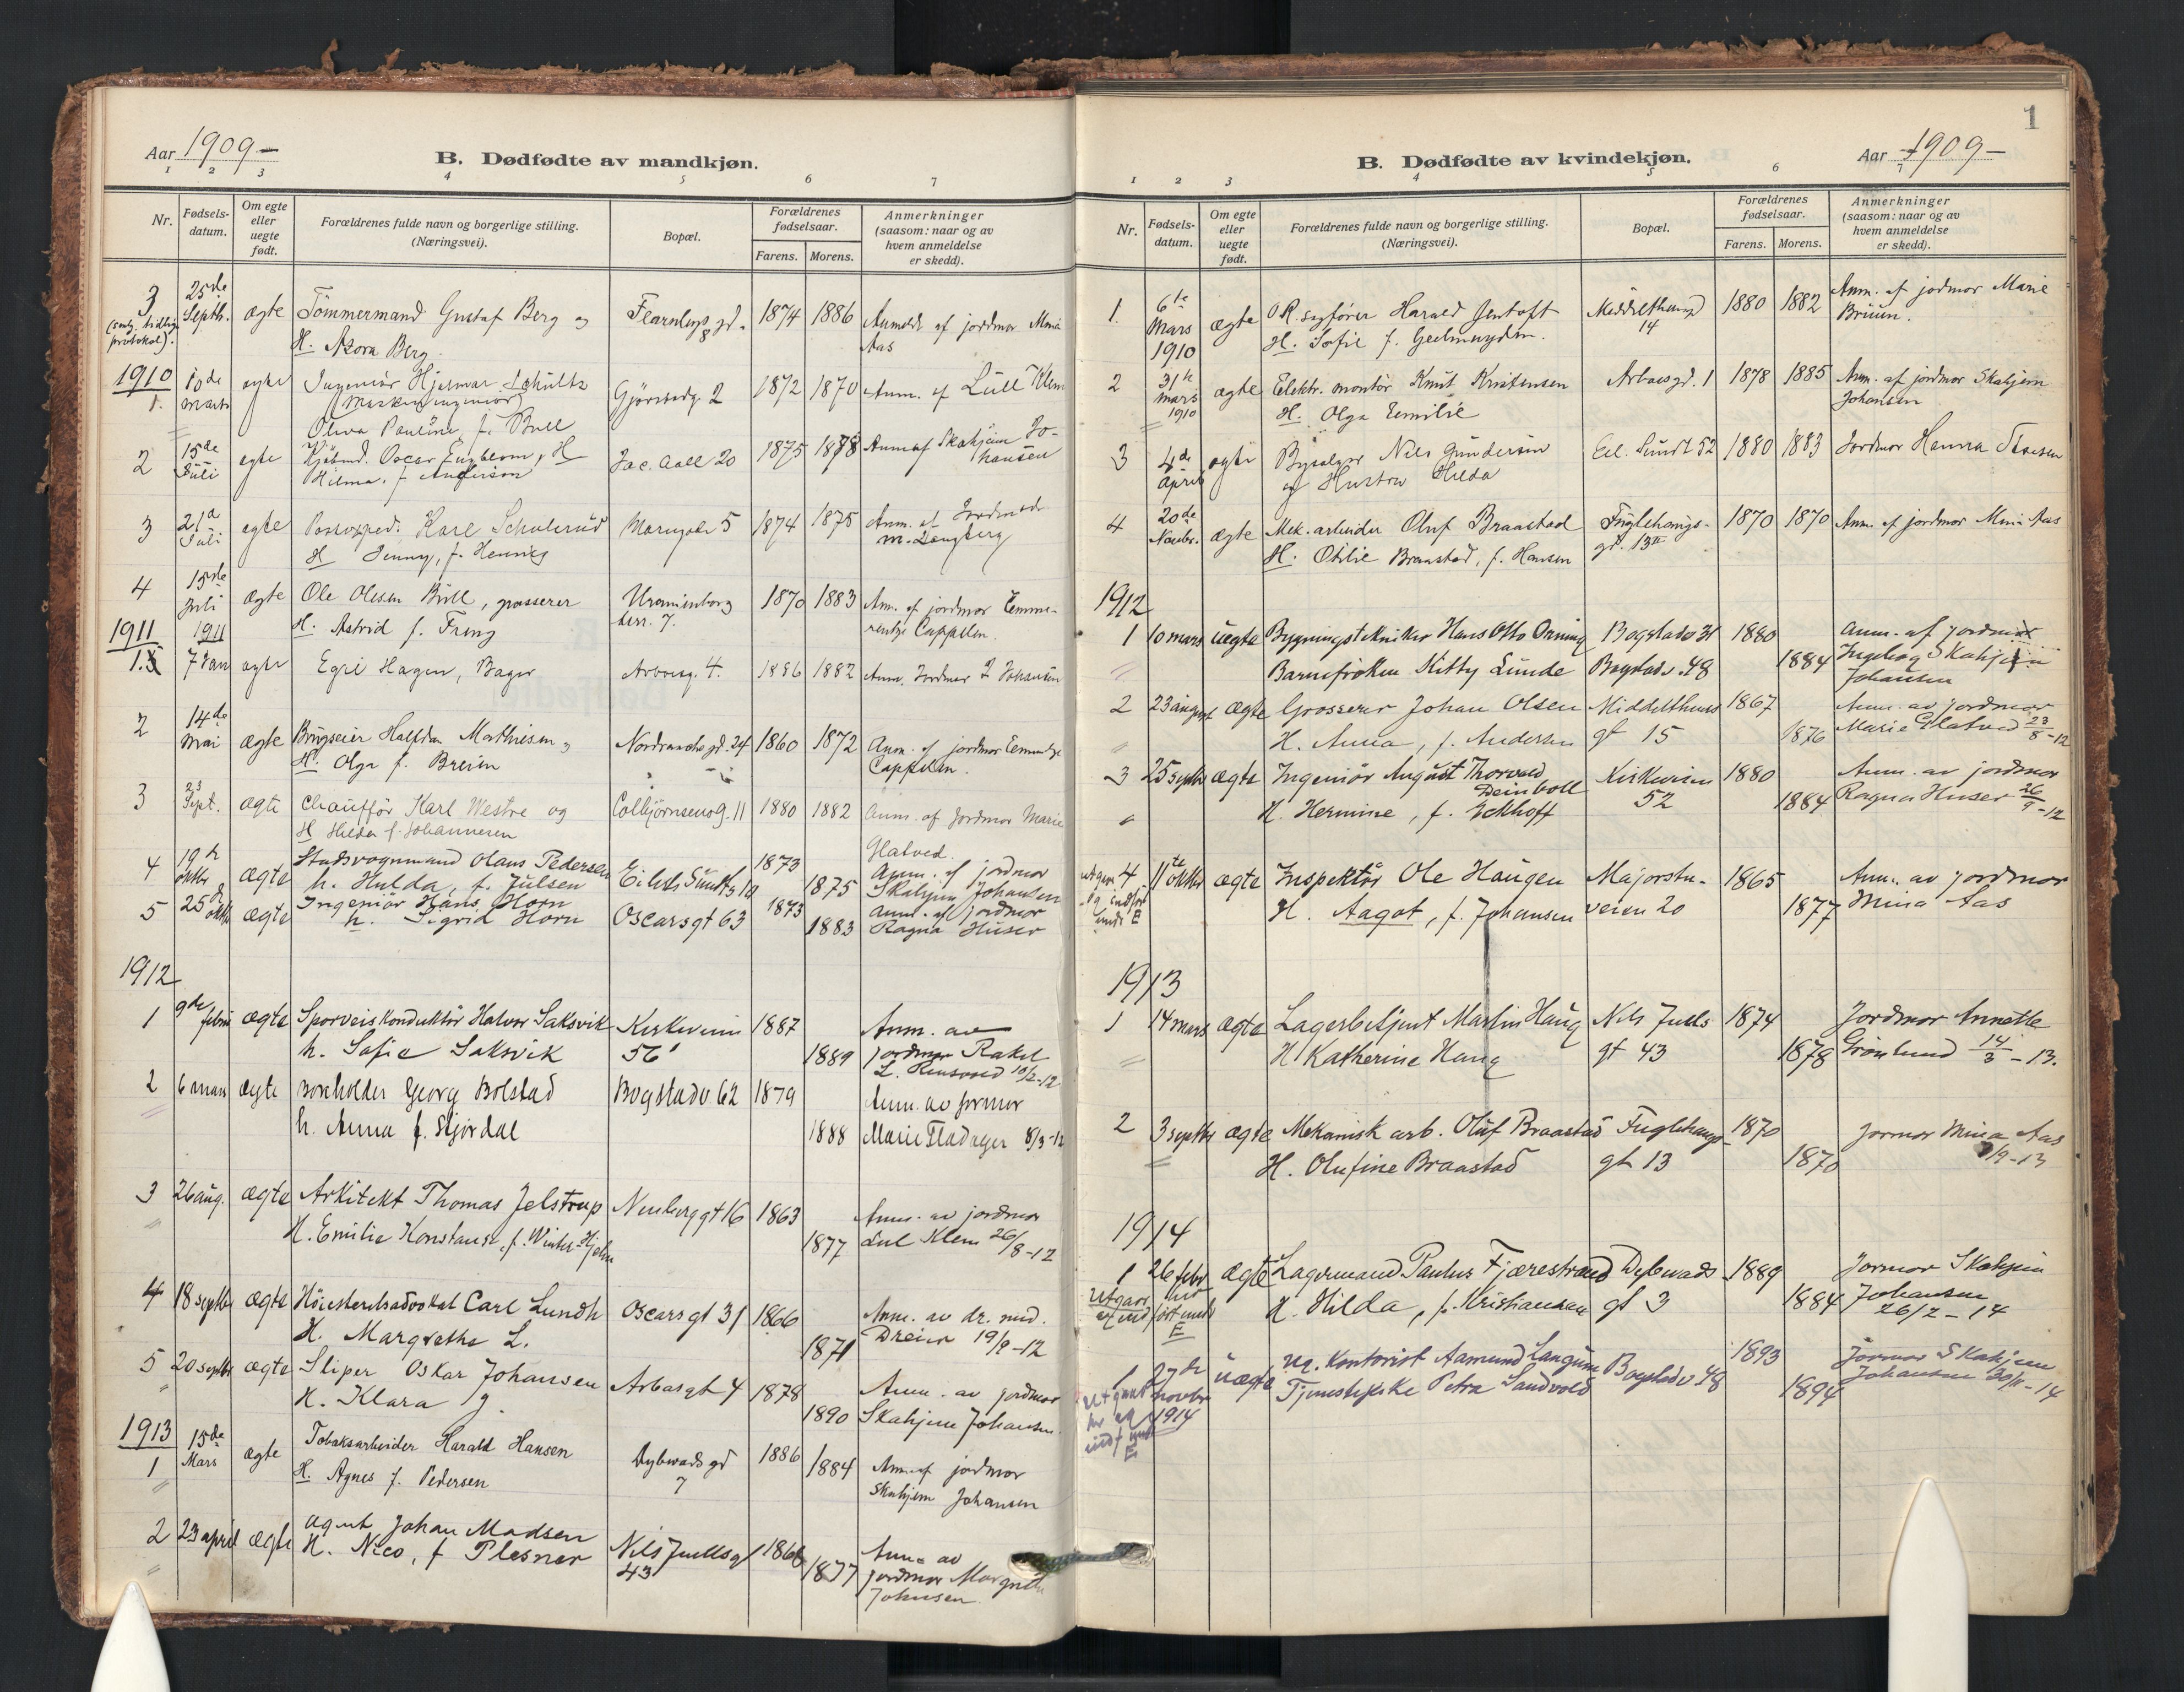 Aar 1909-
B. Dødfødte av mandkjøn.
1 2 3 4 5 6 7
Nr.
Fødsels-datum.
Om egte eller uegte født.
Forældrenes fulde navn og borgerlige stilling. (Næringsvei).
Bopæl.
Forældrenes fødselsaar.
Farens. Morens.
Anmerkninger (saasom: naar og av hvem anmeldelse er skedd).
3 25de Septb. ægte Tömmermand Gustaf Berg og Fearnleys gd. 8 1874 1886 Anmeldt af jordmor Mina Aas
H. Azora Berg.
1910
1. 10de marts ægte Ingeniör Hjelmar Schultz Gjörstadg. 2 1872 1870 Anm. af Lull Klem
(Maskiningeniör)
Oliva Pauline, f. Bull
2 15de Juli egte Kjöbmd. Oscar Engblom, H Jac. Aall 20 1875 1878 Anm af Skahjem Johansen
Hilma, f. Anderson
3 21a Juli egte Karl Schulerud 5 1874 1875 Anm. af Jordmod. M. Langberg
H Jenny, f. Hennig
4 15de Juli ægte Ole Olesen Bull, grosserer Uranienborg terr. 7. 1870 1883 Anm. af jordmor Emmerentze Cappelen.
H. Astrid f. Freng
1911
1911
1. 7 Jan ægte Egil Hagen, Bager Arboesg. 4. 1886 1882 Anm. Jordmor S Johansen
2 14de Mai ægte Brugseier Halfdan Mathiesen og Nordraachs gd. 24 1860 1872 Anm. af jordmor Cappelen.
H. Olga f. Breien
3 23 Sept. ægte Chauffør Karl Westre og Colbjörnsensg. 11 1880 1882 Anm. af Jordmor Marie Glatved.
H Hilda f. Johannesen
4 19de oktbr ægte Stadsvognmand Olaus Pedersen Eilets Sundts 1873 1875 Anm. af jordmor Skahjem Johansen
h. Hulda, f. Julsen
5 25de oktbr ægte Ingeniör Hans Horn Oscarsgt 63 1873 1883 Anm. af jordmor Ragna Huser
h. Sigrid Horn
1912
1 9de febr ægte Sporveiskonduktör Halvor Saksvik Kirkeveien 56 1887 1889 Anm. av jordmor Rakel L. 10/2-12
h. Sofie Saksvik
2 6 mars ægte Georg Bolstad Bogstadv 62 1879 1888 Anm. av jormor Marie Fladager 8/3-12
h. Anna f. Stjördal
3 26 aug. ægte Arkitekt Thomas Jelstrup Neuberggt 16 1863 1877 Anm. av jordmor Lul Klem 26/8-12
H. Emilie Konstanse, f. Winter-Hjelm
4 18 septbr ægte Höiesteretsadvokat Carl Lundh Oscarsgt 31 1866 1871 Anm. av dr. med. Dreier 19/9-12
H. Margrethe L.
5 20 septbr ægte Sliper Oskar Johansen Arbosgt 4 1878 1890 Anm. av jordmor Skahjem Johansen.
H. Klara J.
1913
1 15de Mars ægte Tobaksarbeider Harald Hansen Dybwadsgd 7 1886 1884 Anm. af jordmor Skahjem Johansen
H. Agnes f. Pedersen
2 23 april ægte agent Johan Madsen Nils Juelsg 43 1866 1877 Anm. av jordmor Margrethe Johnsen.
H. Nico, f Plesner
1
B. Dødfødte av kvindekjøn.
Aar 1909-
1 2 3 4 5 6 7
Nr.
Fødsels-datum.
Om egte eller uegte født.
Forældrenes fulde navn og borgerlige stilling. (Næringsvei).
Bopæl.
Forældrenes fødselsaar.
Farens. Morens.
Anmerkninger (saasom: naar og av hvem anmeldelse er skedd).
1. 6te Mars 1910 ægte O.R.sagförer Harald Jentoft Middelthunsgd 14 1880 1882 Anm. af jordmor Marie Bruun.
H. Sofie f. Geelmuyden.
2 31te mars 1910 ægte Elektr. montör Knut Kristensen Arboesgd. 1 1878 1885 Anm. af jordmor Skahjem Johansen
H. Olga Emilie
3 4de April ægte Nils Gundersen Eil. Sundt 52 1880 1883 Jordmor Hanna
og Hustru Hilda
4 20de Novbr. ægte Mek. arbeider Oluf Braastad Fuglehaugs-gt. 13 1870 1870 Anm. af jordmor Mina Aas
H. Otilie Braastad, f. Hansen
1912
1 10 mars uægte Bygningstekniker Hans Otto Orning Bogstadv 31 1880 Anm. af jordmor Ingeborg Skahjem Johansen
Barnefröken Kitty Lunde Bogstadv. 48 1884
2 23 august ægte Grosserer Johan Olsen Middelthuns gt 15 1867 1876 Anm. av jordmor Marie Glatved 23/8-12
H. Anna, f. Andersen
3 25 septbr ægte Ingeniör August Thorvald Deinboll Kirkeveien 52 1880 1884 Anm. av jordmor Ragna Huser 26/9-12
H. Hermine, f. Eckhoff
4 11te oktbr ægte Inspektör Ole Haugen Majorstu-veien 20 1865 1877 Anm. av jordmor Mina Aas
H. Aagot, f. Johansen
utgaar og indfört under E
1913
1 14 mars ægte Lagerbetjent Martin Haug Nils Juels gt 43 1874 1878 Jordmor Annette Grönlund 14/3-13.
H Katherine Haug
2 3 septbr ægte Mekanisk arb. Oluf Braastad Fuglehaugs gt 13 1870 1870 Jormor Mina Aas /9-13
H. Olufine Braastad
1914
1 26 febr ægte Lagermand Paulus Fjærestrand Dybwads gt 3 1889 1884 Jormor Skahjem Johansen 26/2-14
H. Hilda, f. Kristiansen
Utgaar her og indfört under E
1 27de novbr 1914 uægte ug. Kontorist Aamund Langum Bogstadv 48 1893 1894 Jormor Skahjem Johansen 30/11-14
Tjenestepike Petra Sandvold
Utgaar her og indf und E